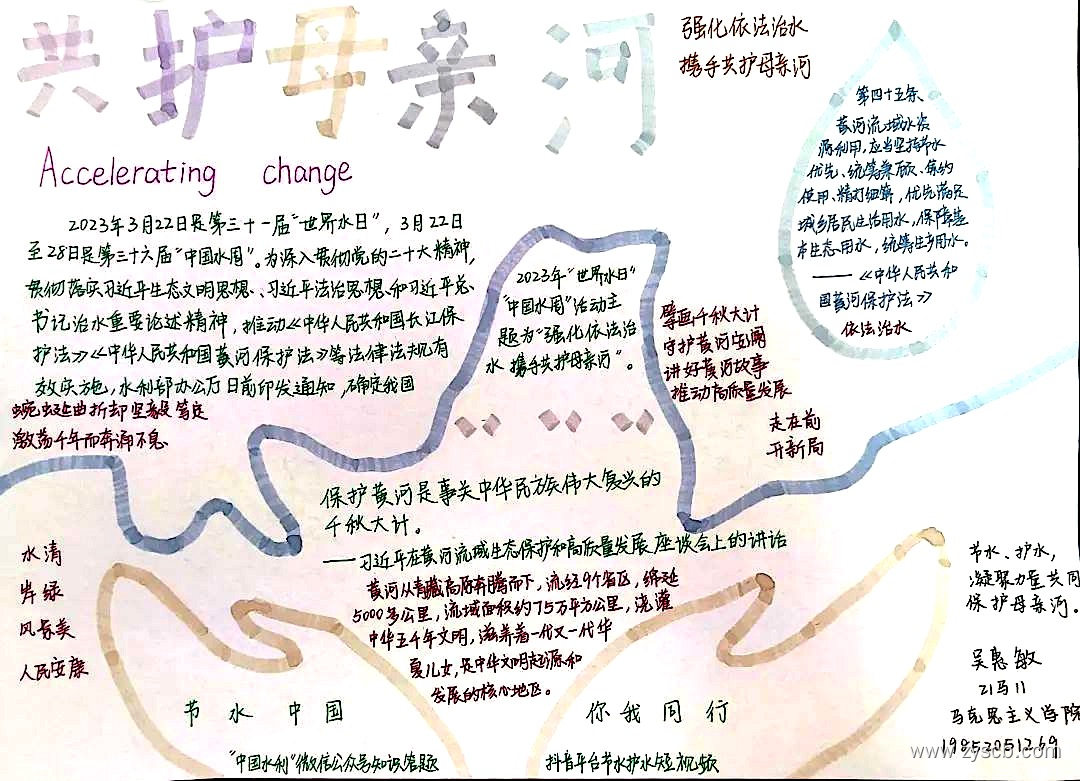 共护母亲河
强化依法治水
携手共护母亲河
Accelerating change
2023年3月22日是第三十一届“世界水日”，3月22日
至28日是第三十六届“中国水周”。为深入贯彻党的二十大精神，
贯彻落实习近平生态文明思想、习近平法治思想和习近平总
书记治水重要论述精神，推动《中华人民共和国长江保
护法》《中华人民共和国黄河保护法》等法律法规有
效实施，水利部办公厅日前印发通知，确定我国
2023年“世界水日”
“中国水周”活动主
题为“强化依法治
水 携手共护母亲河”。
第四十五条
黄河流域水资
源利用，应当坚持节水
优先、统筹兼顾、集约
使用、精打细算，优先满足
城乡居民生活用水，保障基
本生态用水，统筹生产用水。
——《中华人民共和
国黄河保护法》
依法治水
擘画千秋大计
守护黄河安澜
讲好黄河故事
推动高质量发展
走在前
开新局
蜿蜒曲折却坚毅笃定
激荡千年而奔涌不息
保护黄河是事关中华民族伟大复兴的
千秋大计。
——习近平在黄河流域生态保护和高质量发展座谈会上的讲话
水清
岸绿
风景美
人民安康
黄河从青藏高原奔腾而下，流经9个省区，绵延
5000多公里，流域面积约75万平方公里，浇灌
中华五千年文明，滋养着一代又一代华
夏儿女，是中华文明起源和
发展的核心地区。
节水、护水，
凝聚力量共同
保护母亲河。
吴惠敏
21马11
马克思主义学院
19853051269
节水中国
你我同行
“中国水利”微信公众号知识答题
抖音平台节水护水短视频
www.zyscb.com